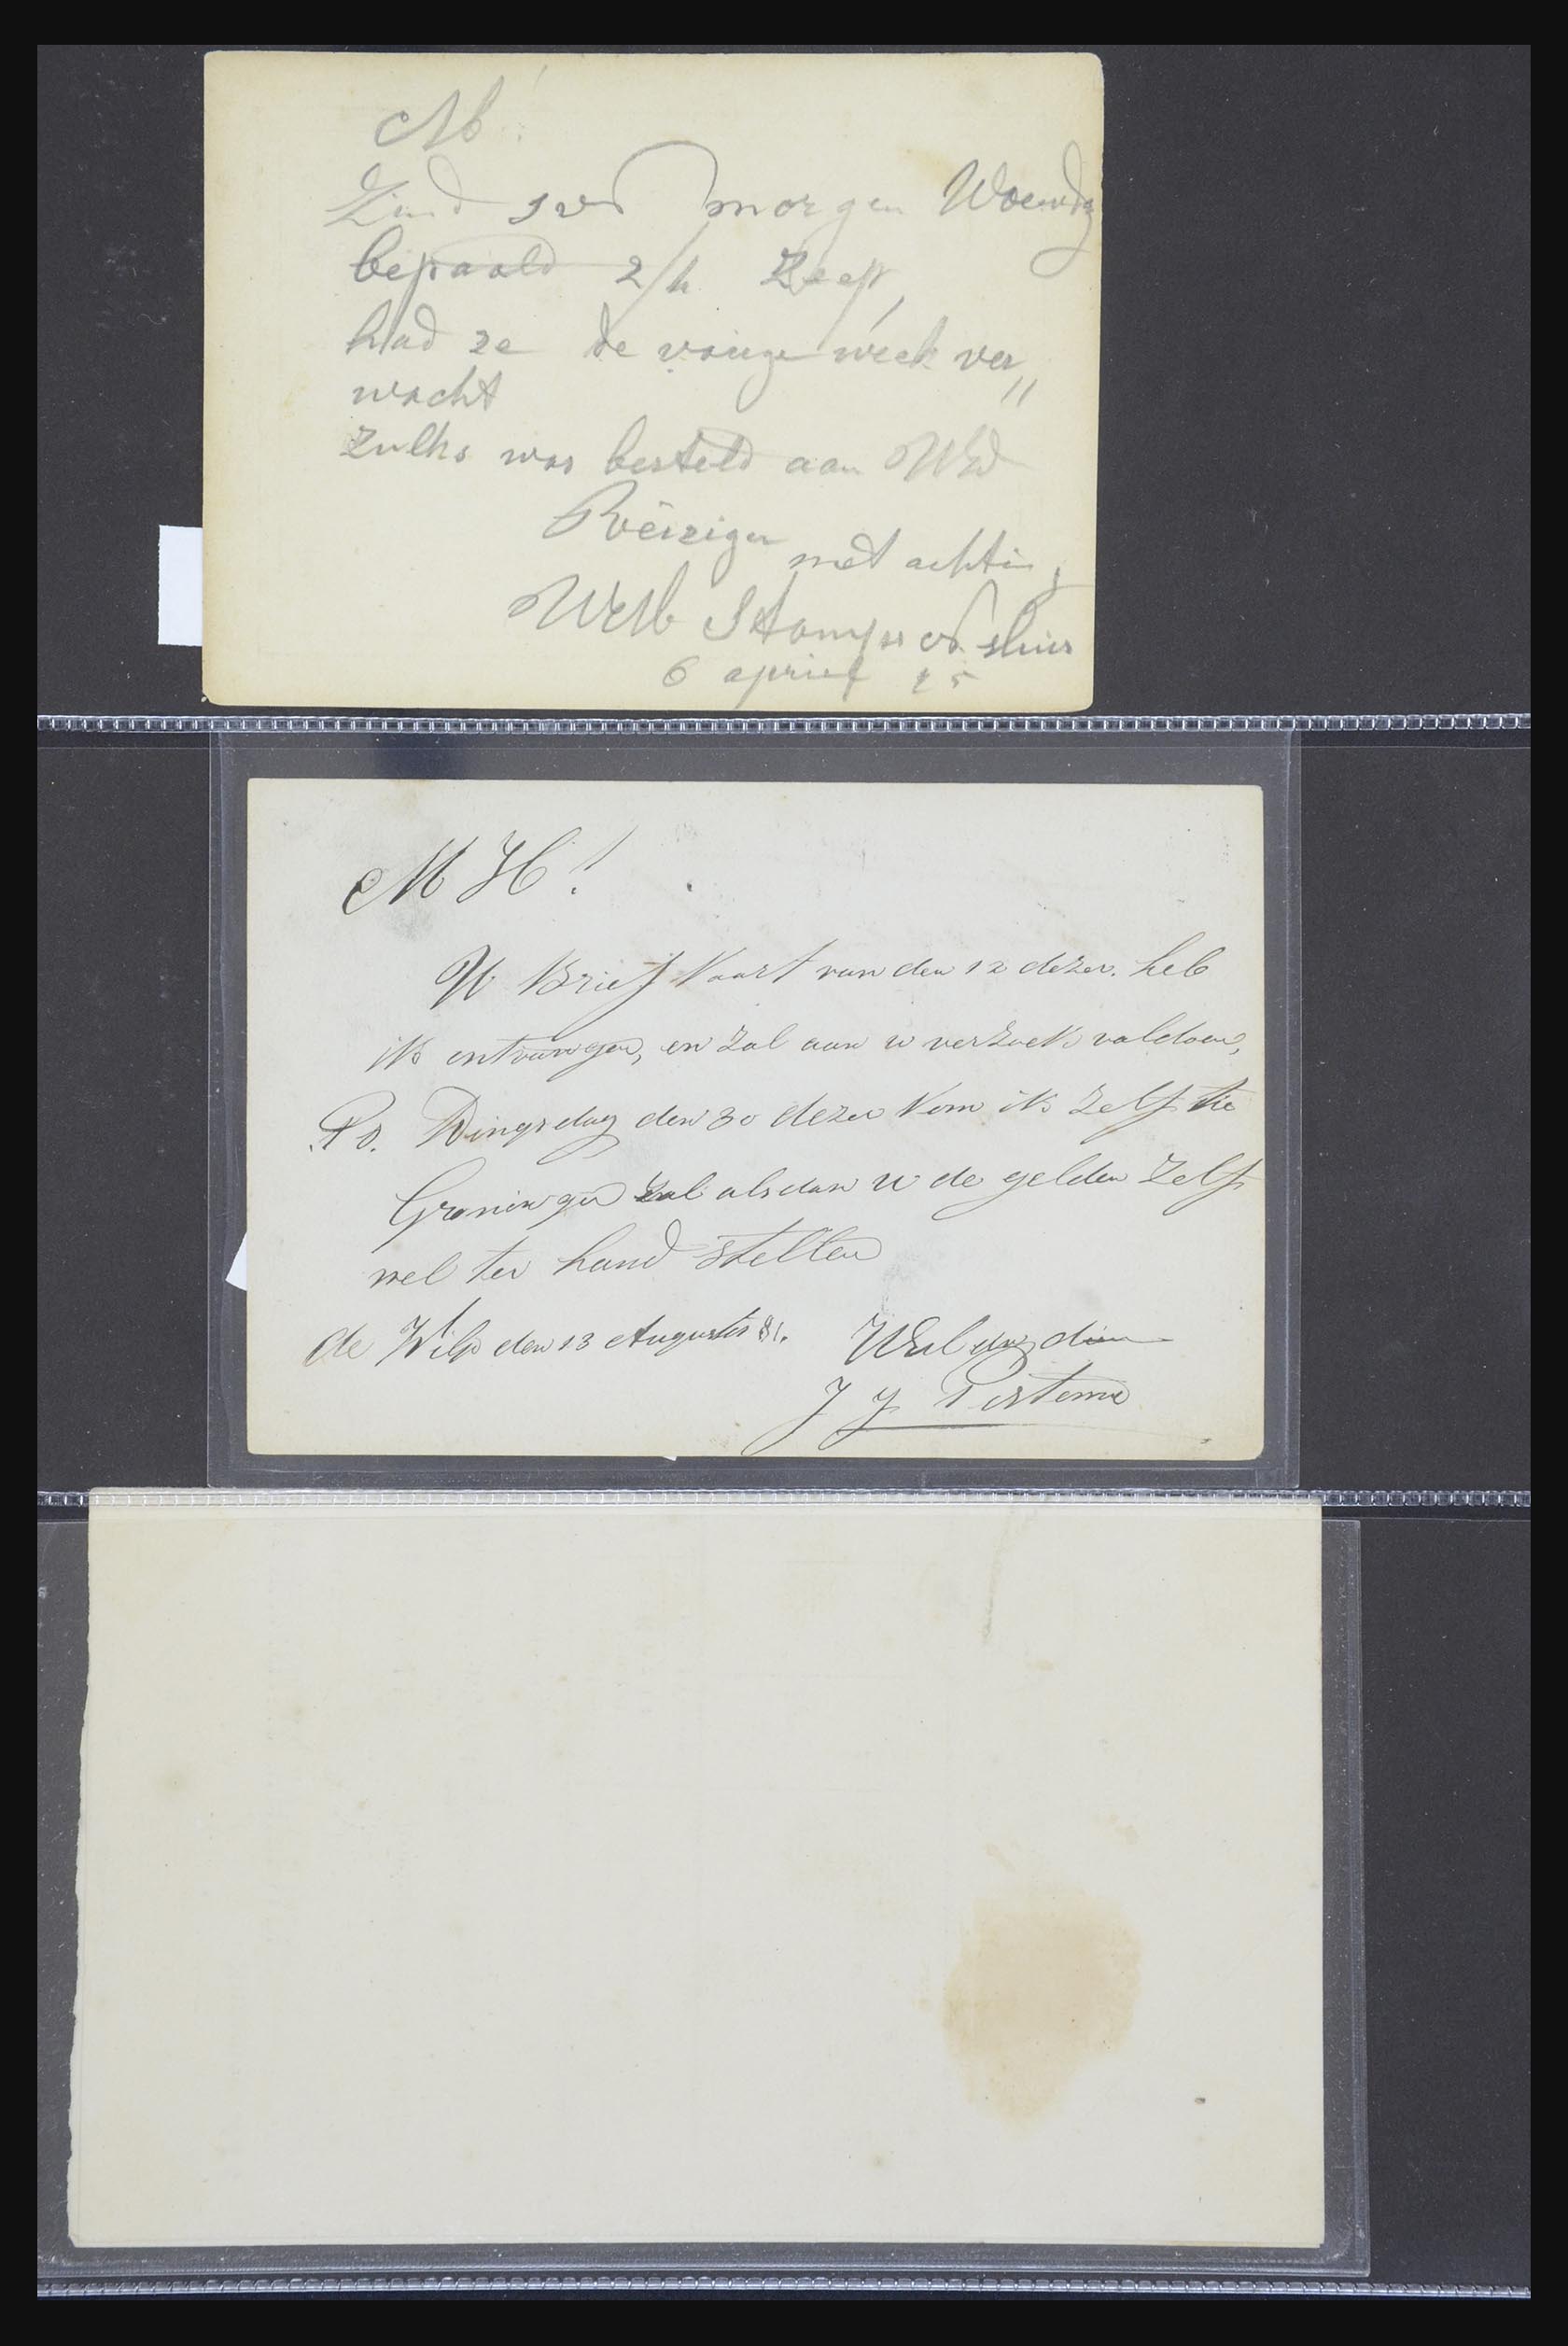 M !
Zend svp morgen Woensdg
bepaald 2/h Zeep,
had ze de vorige week ver„
wacht
zulks was besteld aan UEd
Reiziger
met achting
Stamps
6 april 25
M H !
UW Briefkaart van den 12 dezer heb
ik ontvangen, en zal aan u verzoek voldoen,
Ps. Dingsdag den 30 dezer kom ik zelf te
Groningen zal alsdan u de gelden zelf
wel ter hand stellen
de Wilp den 13 Augustus 81.
J J Postema